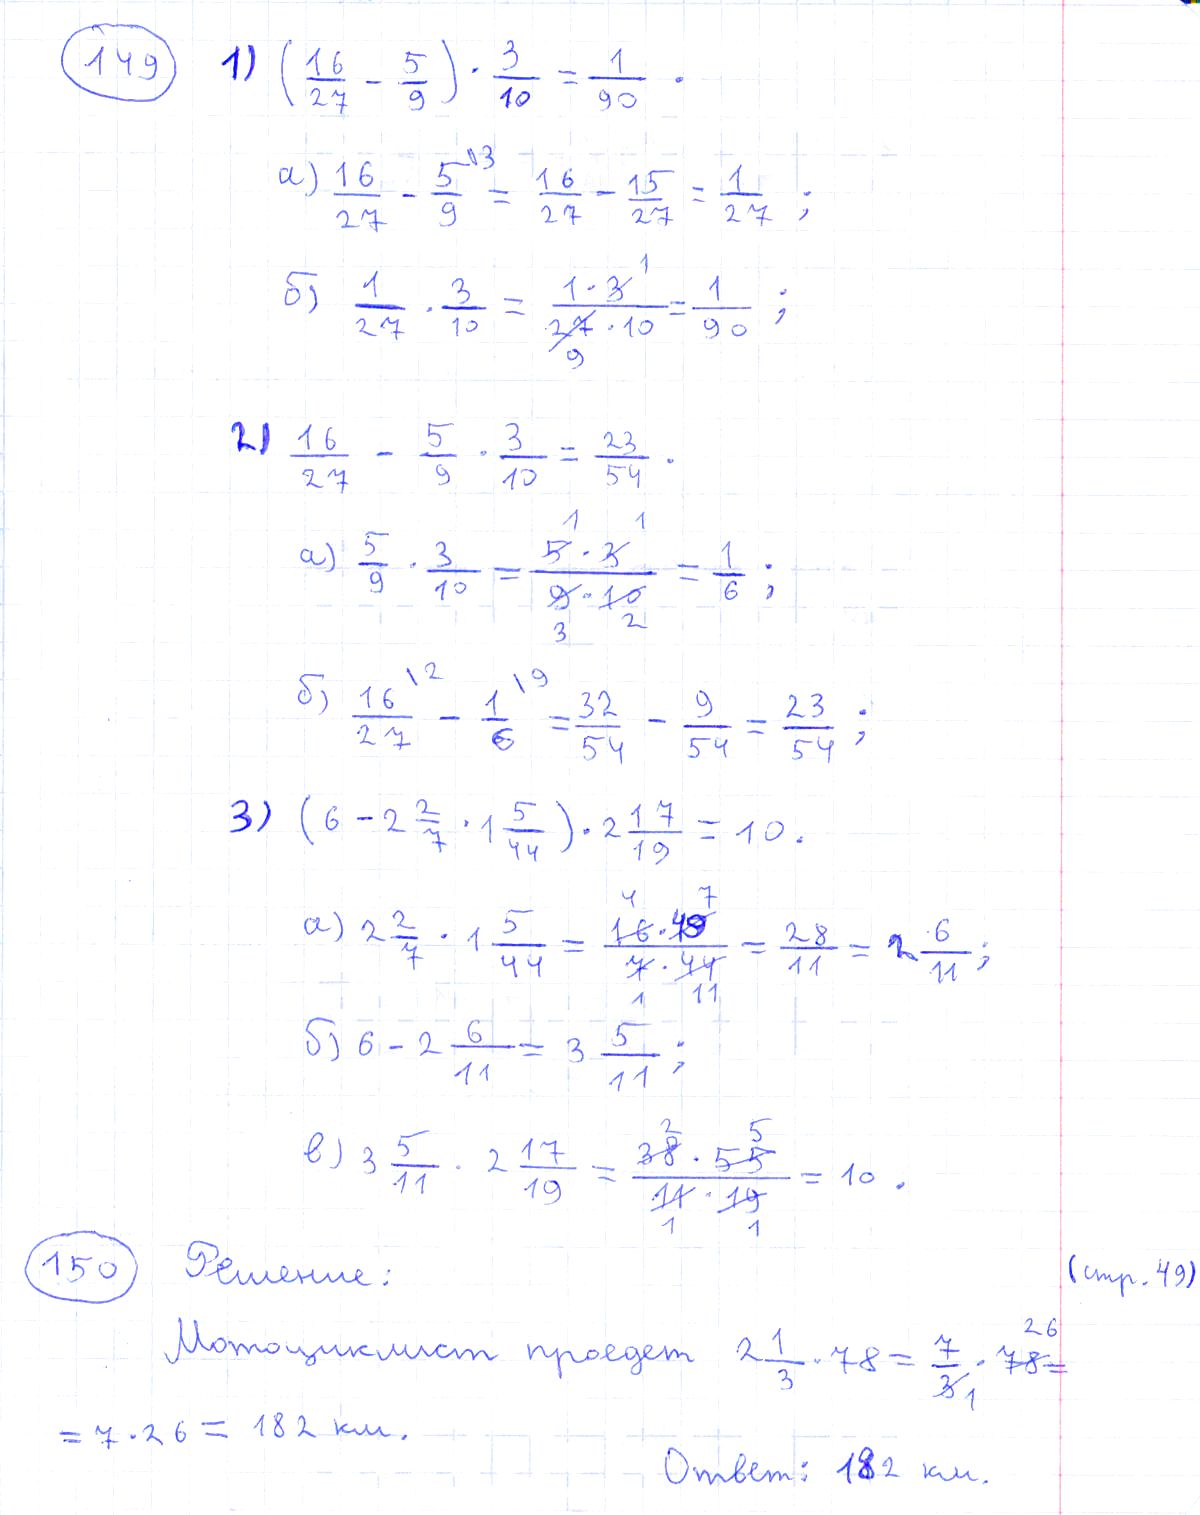 149 1) (16/27 - 5/9) · 3/10 = 1/90 .
а) 16/27 - 5/9 \3 = 16/27 - 15/27 = 1/27 ;
б) 1/27 · 3/10 = 1 · 3 1 / 27 9 · 10 = 1/90 ;
2) 16/27 - 5/9 · 3/10 = 23/54 .
а) 5/9 · 3/10 = 5 1 · 3 1 / 9 3 · 10 2 = 1/6 ;
б) 16/27 \2 - 1/6 \9 = 32/54 - 9/54 = 23/54 ;
3) (6 - 2 2/7 · 1 5/44) · 2 17/19 = 10 .
а) 2 2/7 · 1 5/44 = 16 4 · 49 7 / 7 1 · 44 11 = 28/11 = 2 6/11 ;
б) 6 - 2 6/11 = 3 5/11 ;
в) 3 5/11 · 2 17/19 = 38 2 · 55 5 / 11 1 · 19 1 = 10 .
150 Решение: (стр. 49)
Мотоциклист проедет 2 1/3 · 78 = 7/3 1 · 78 26 =
= 7 · 26 = 182 км.
Ответ: 182 км.